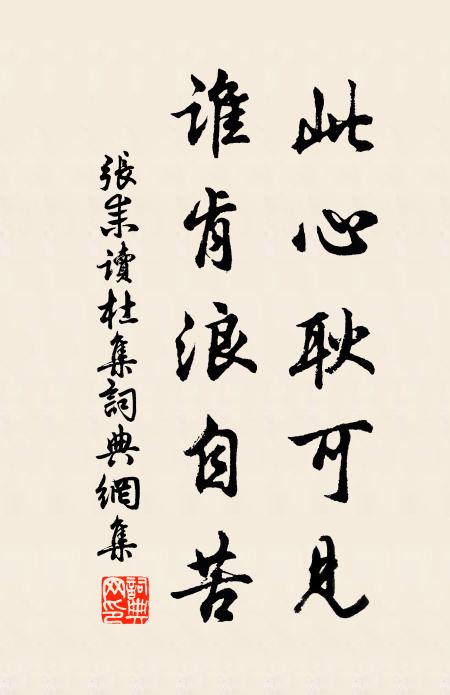 此心耿可見
誰肯浪自苦
張耒讀杜集詞典網集
詞典网印